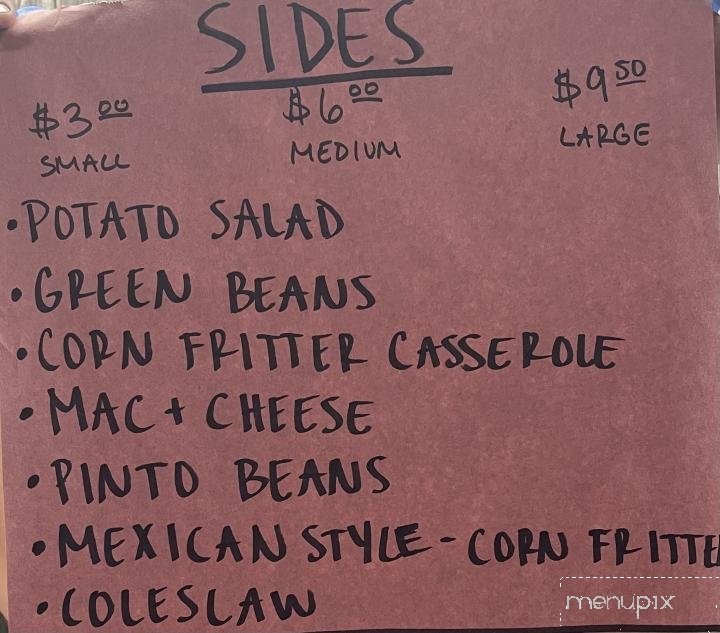 SIDES
$3.00 $6.00 $9.50
SMALL MEDIUM LARGE
• POTATO SALAD
• GREEN BEANS
• CORN FRITTER CASSEROLE
• MAC + CHEESE
• PINTO BEANS
• MEXICAN STYLE - CORN FRITTE
• COLESLAW
menupix